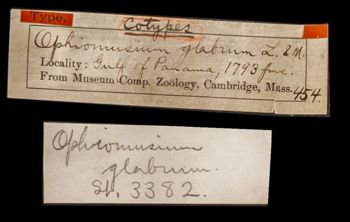 Type. Cotypes
Ophiomusium glabrum L. & M.
Locality: Gulf of Panama, 1793 fms.
From Museum Comp. Zoölogy, Cambridge, Mass. 454.
Ophiomusium
glabrum.
St. 3382.